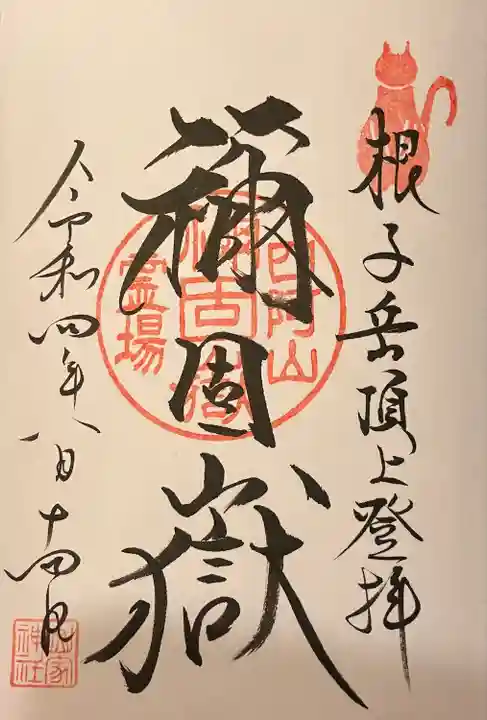 根子岳頂上登拝
禰固嶽
四阿山
禰古嶽
霊場
令和四年八月十四日
山家神社